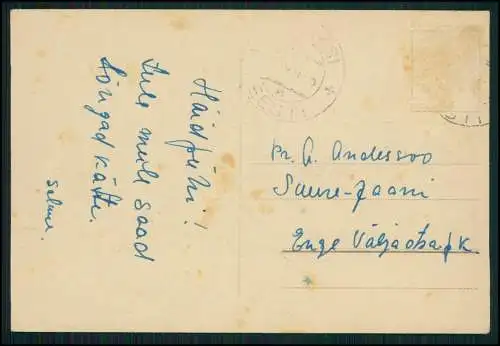 Häid pühi!
Tule meile saad
lõngad kätte.
Salme.
Pr. A. Anderssoo
Suure-Jaani
Enge Väljaotsa pk